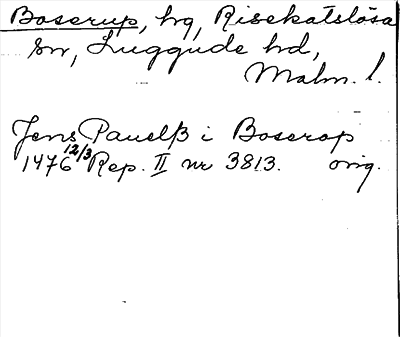 Boserup, hg, Risekatslösa
sn, Luggude hd,
Malm. l.
Jens Pauelß i Boserop
1476 12/3 Rep. II nr 3813. orig.